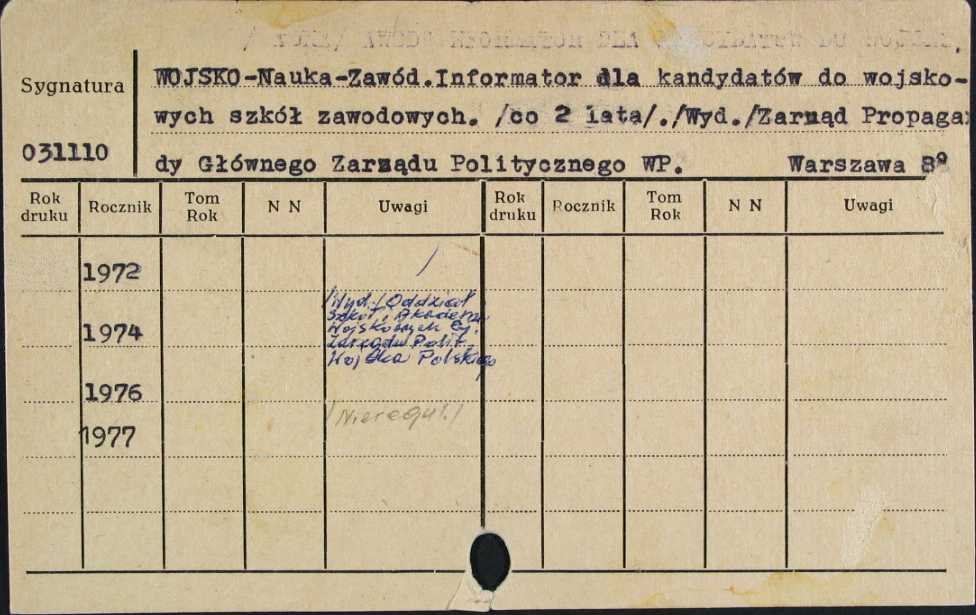 Sygnatura
WOJSKO-Nauka-Zawód.Informator dla kandydatów do wojsko-
wych szkół zawodowych. /co 2 lata/./Wyd./Zarząd Propagan
031110
dy Głównego Zarządu Politycznego WP. Warszawa 8°
Rok druku Rocznik Tom Rok N N Uwagi Rok druku Rocznik Tom Rok N N Uwagi
1972 /
/Wyd./Oddział
Szkół i Akademii
1974 Wojskowych Gł.
Zarządu Polit.
Wojska Polskiego
1976
/Nieregul./
1977